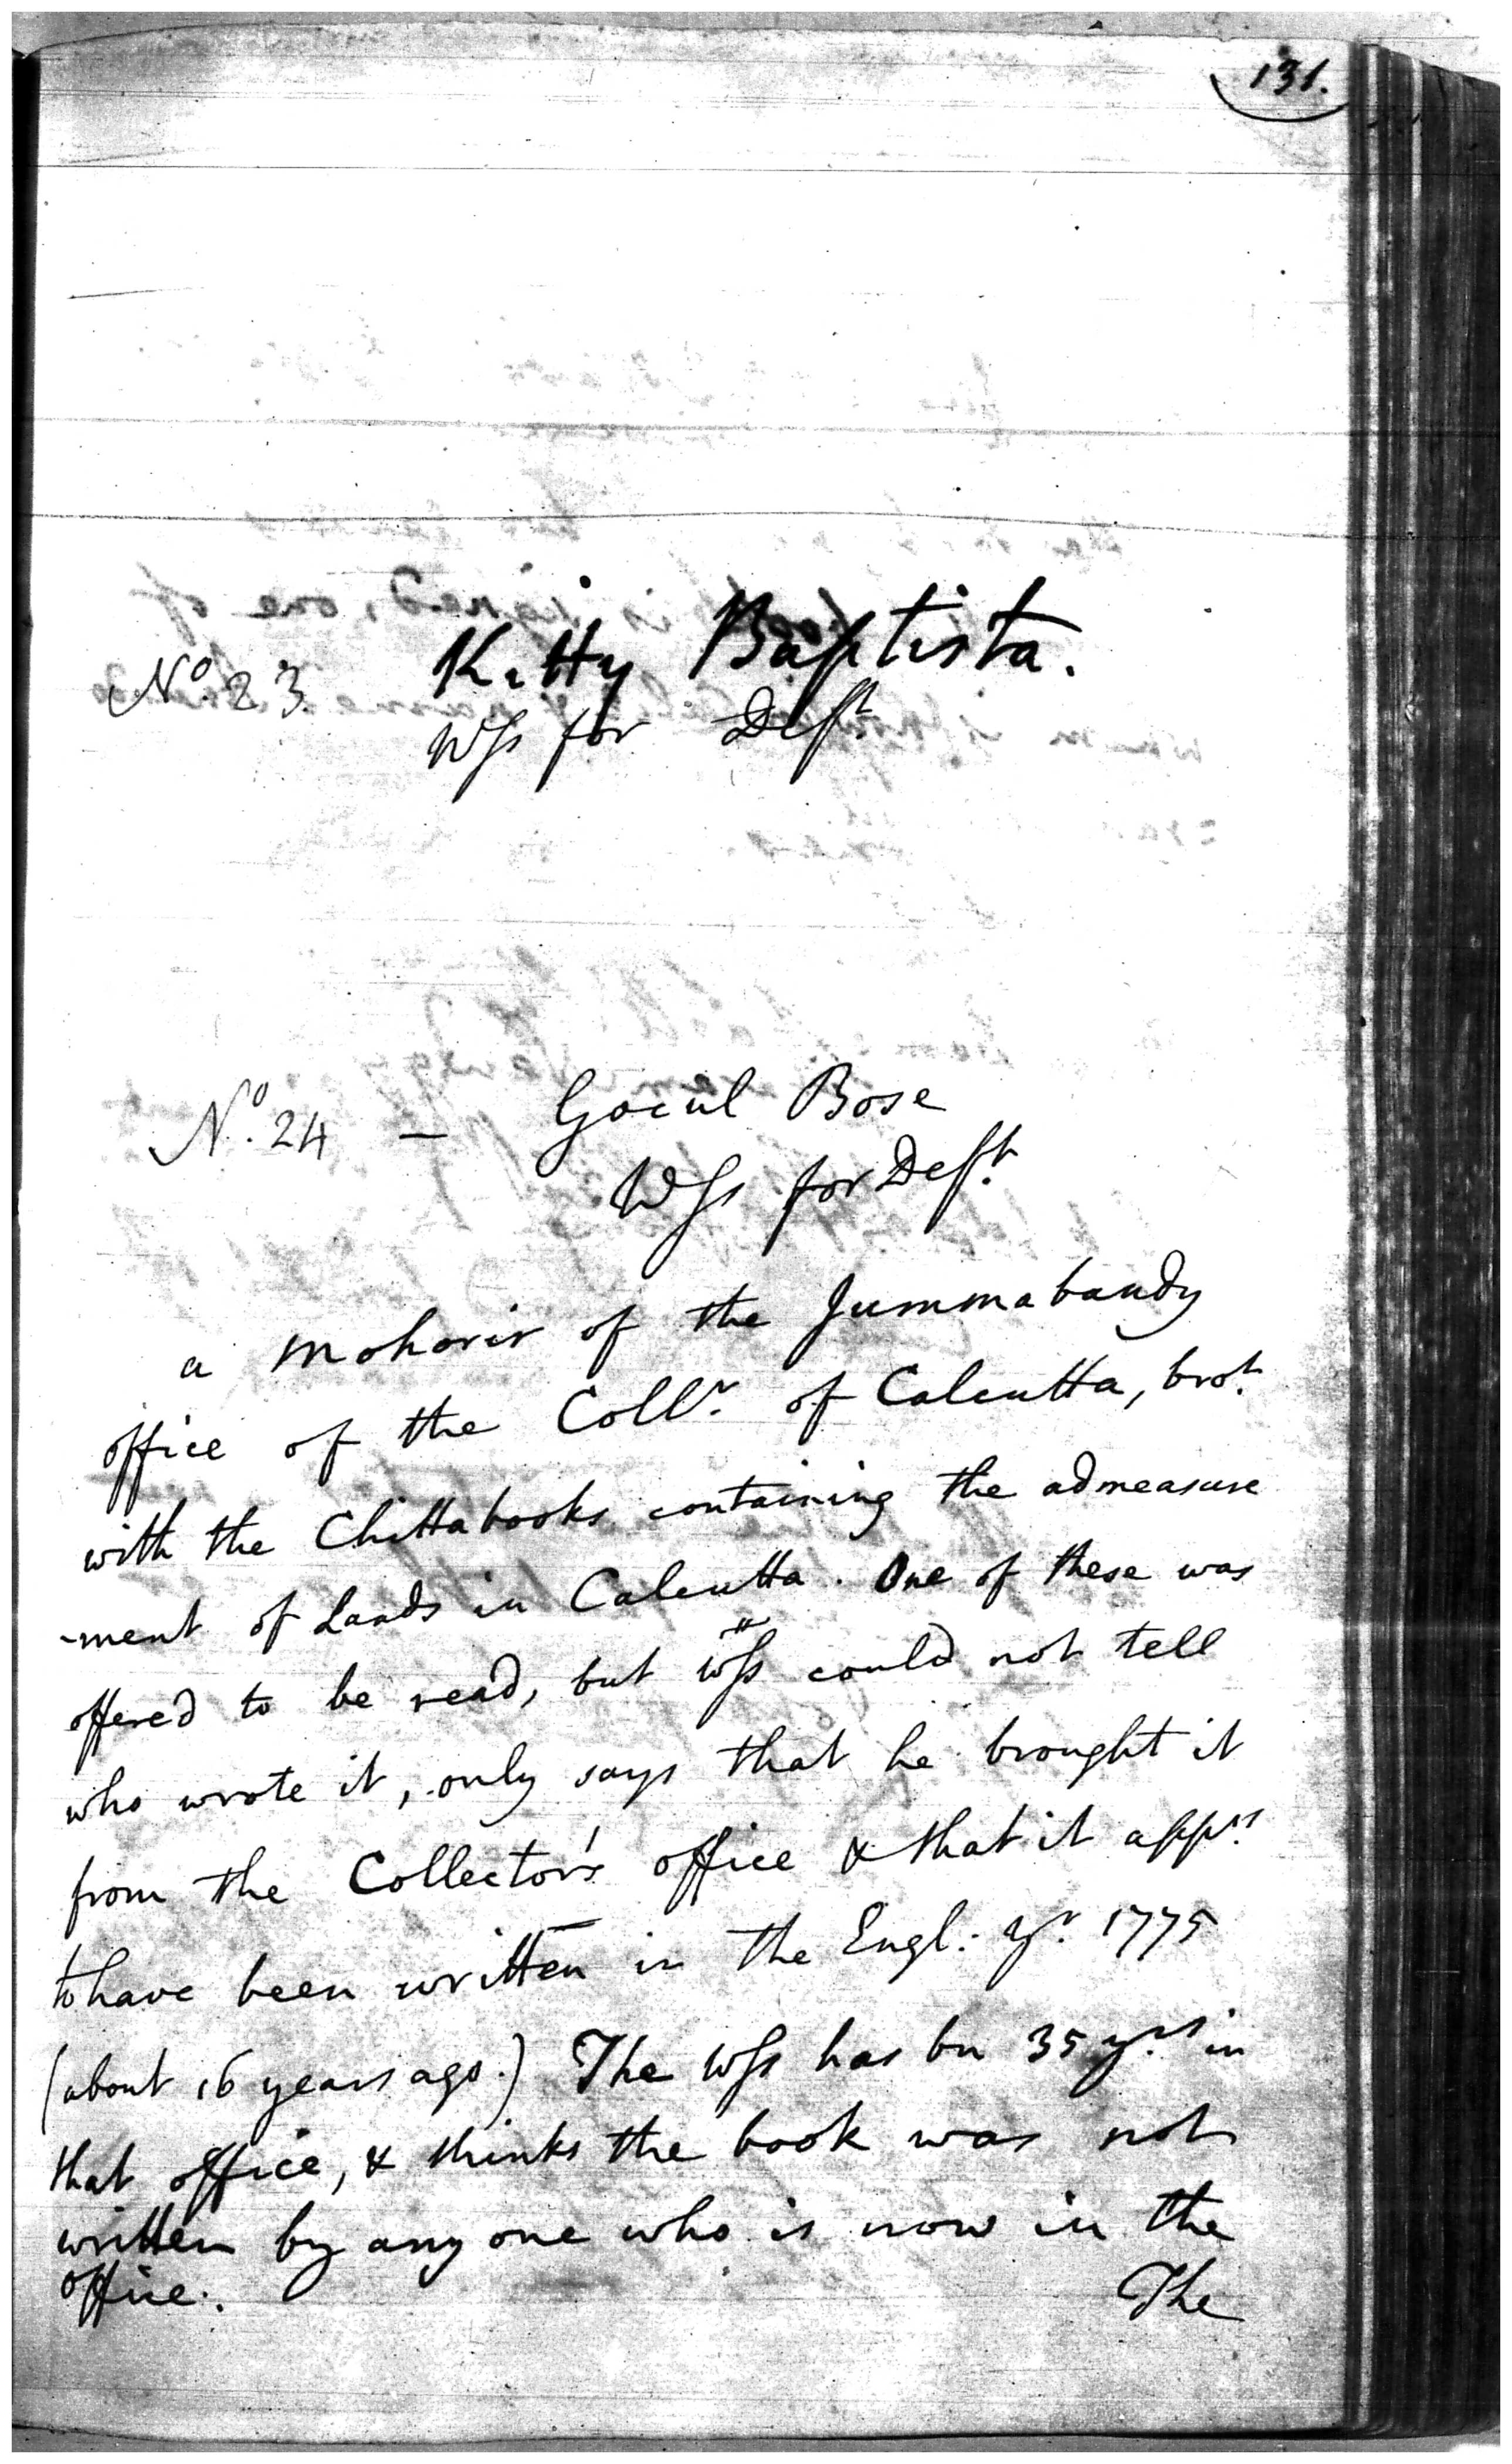 131.
Kitty Baptista.
No. 23
Wss for Deft
No. 24 — Gocul Bose
Wss for Deft.
a Mohorir of the Jummabandy
office of the Collr. of Calcutta, brot.
with the Chittabooks containing the admeasure
-ment of Lands in Calcutta. One of these was
offered to be read, but wss could not tell
who wrote it, only says that he brought it
from the Collector's office & that it apprs.
to have been written in the Engl: yr. 1775
(about 16 years ago.) The Wss has bn 35 yrs. in
that office, & thinks the book was not
written by any one who is now in the
office.
The